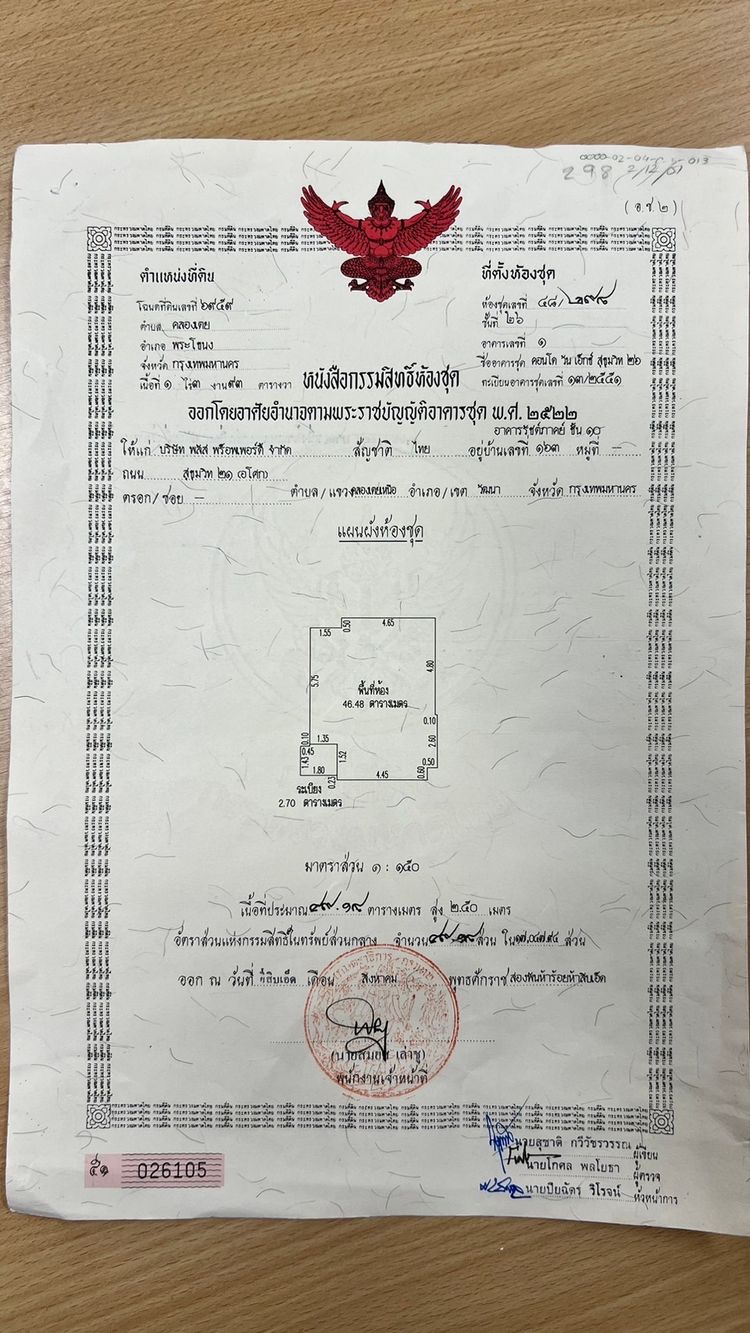 298 2/12/51
(อ.ช.๒)
ตำแหน่งที่ดิน
โฉนดที่ดินเลขที่ ๖๙๕๙
ตำบล คลองเตย
อำเภอ พระโขนง
จังหวัด กรุงเทพมหานคร
เนื้อที่ ๑ ไร่ ๓ งาน ๙๓ ตารางวา
ที่ตั้งห้องชุด
ห้องชุดเลขที่ ๔๘/๒๙๘
ชั้นที่ ๒๖
อาคารเลขที่ ๑
ชื่ออาคารชุด คอนโด วัน เอ็กซ์ สุขุมวิท ๒๖
ทะเบียนอาคารชุดเลขที่ ๑๓/๒๕๕๑
หนังสือกรรมสิทธิ์ห้องชุด
ออกโดยอาศัยอำนาจตามพระราชบัญญัติอาคารชุด พ.ศ. ๒๕๒๒
อาคารรัชต์ภาคย์ ชั้น ๑๐
ให้แก่ บริษัท พลัส พร็อพเพอร์ตี้ จำกัด สัญชาติ ไทย อยู่บ้านเลขที่ ๑๖๓ หมู่ที่ —
ถนน สุขุมวิท ๒๑ (อโศก)
ตรอก/ซอย — ตำบล/แขวง คลองเตยเหนือ อำเภอ/เขต วัฒนา จังหวัด กรุงเทพมหานคร
แผนผังห้องชุด
4.65
0.50
1.55
4.80
5.75
พื้นที่ห้อง
46.48 ตารางเมตร
0.10
2.60
0.10
1.35
0.45
1.43
1.52
1.80
0.50
0.60
4.45
0.23
ระเบียง
2.70 ตารางเมตร
มาตราส่วน ๑ : ๑๕๐
เนื้อที่ประมาณ ๔๙.๑๘ ตารางเมตร สูง ๒.๕๐ เมตร
อัตราส่วนแห่งกรรมสิทธิ์ในทรัพย์ส่วนกลาง จำนวน ๔๙.๑๘ ส่วน ใน ๑๗,๐๔๗.๙๔ ส่วน
ออก ณ วันที่ ยี่สิบเอ็ด เดือน สิงหาคม พุทธศักราช สองพันห้าร้อยห้าสิบเอ็ด
เล่าซู)
พนักงานเจ้าหน้าที่
นายสุชาติ กวีวัชรวรรณ ผู้เขียน
นายโกศล พลโยธา ผู้ตรวจ
นายปิยฉัตร วิโรจน์ หัวหน้าการ
๕๑ 026105